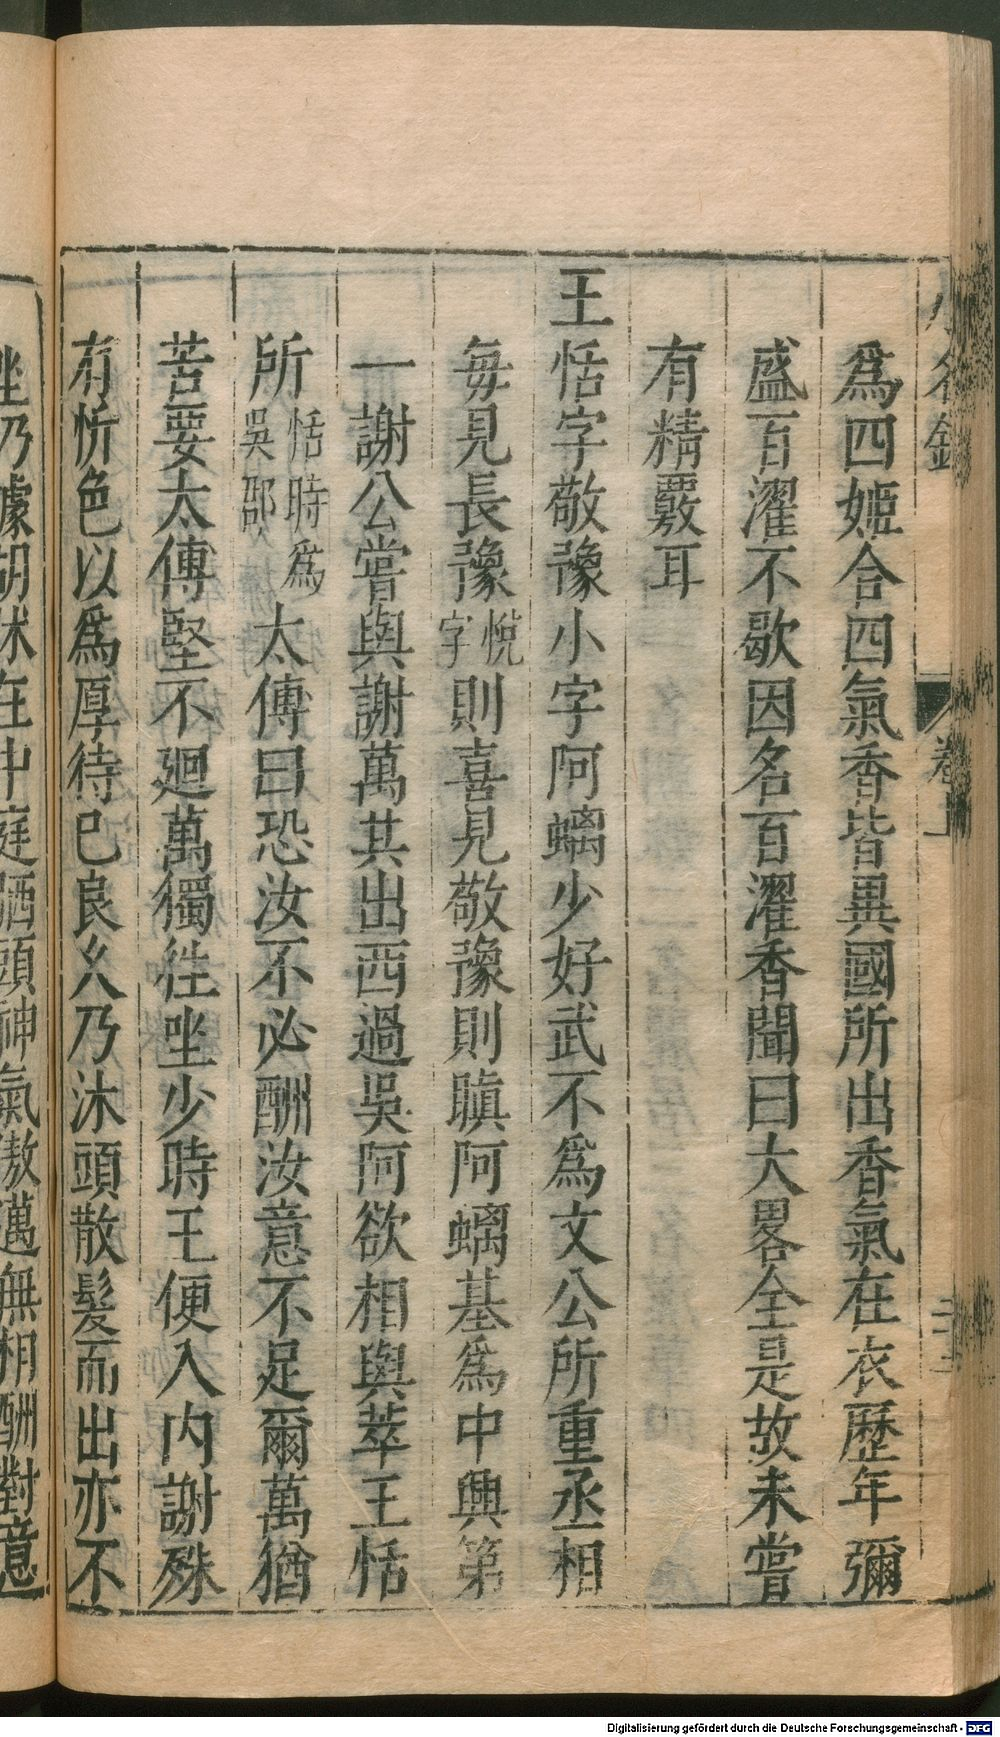 小名錄 卷上
爲四姬合四氣香皆異國所出香氣在衣歷年彌
盛百濯不歇因名百濯香聞曰大畧全是故未嘗
有精覈耳
王恬字敬豫小字阿螭少好武不爲文公所重丞相
毎見長豫悅字則喜見敬豫則瞋阿螭基爲中興第
一謝公嘗與謝萬共出西過吳阿欲相與萃王恬
所恬時爲吳郡太傅曰恐汝不必酬汝意不足爾萬猶
苦要太傅堅不廻萬獨徃坐少時王便入內謝殊
有忻色以爲厚待已良久乃沐頭散髮而出亦不
坐乃據胡牀在中庭晒頭神氣傲邁無相酬對意
Digitalisierung gefördert durch die Deutsche Forschungsgemeinschaft - DFG